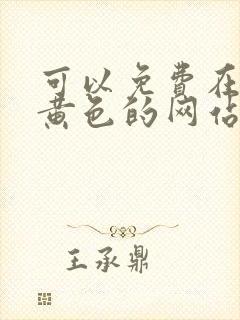 可以免费在
黄色的网站
王承鼎